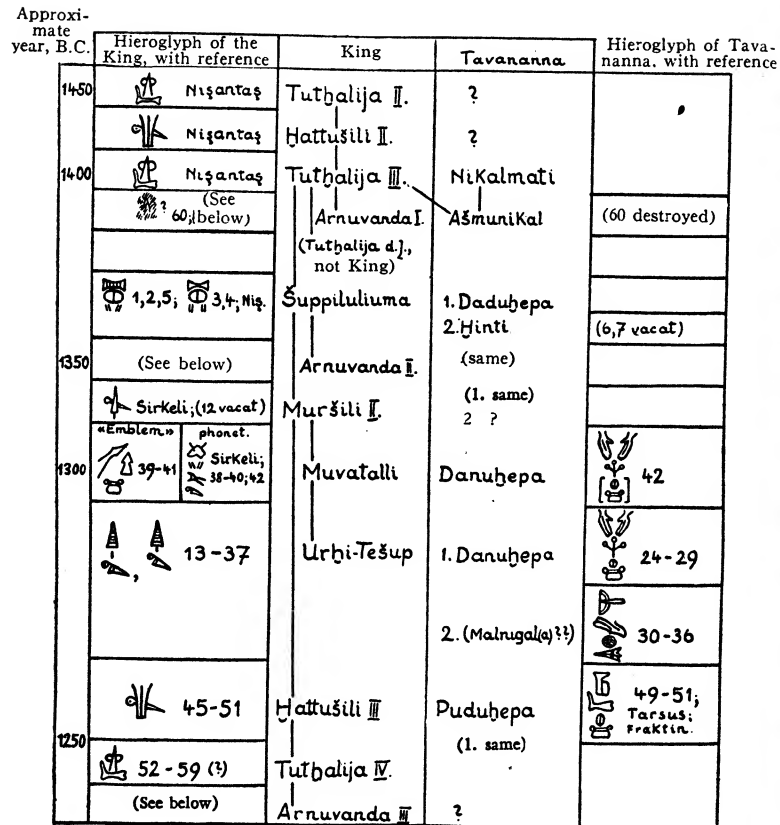 Approxi-
mate
year, B.C.
Hieroglyph of the
King, with reference
King
Tavananna
Hieroglyph of Tava-
nanna, with reference
1450
Nişantaş
Tutḫalija II.
?
Nişantaş
Ḫattušili II.
?
1400
Nişantaş
Tutḫalija III.
Nikalmati
? (See
60; below)
Arnuvanda I.
Ašmunikal
(60 destroyed)
(Tutḫalija d. J.,
not King)
1,2,5; 3,4; Niş.
Šuppiluliuma
1. Daduḫepa
2. Ḫinti
(6,7 vacat)
1350
(See below)
Arnuvanda II.
(same)
Sirkeli; (12 vacat)
Muršili II.
(1. same)
2 ?
«Emblem»
phonet.
1300
39-41
Sirkeli;
38-40; 42
Muvatalli
Danuḫepa
[ ] 42
, 13-37
Urḫi-Tešup
1. Danuḫepa
24-29
2. (Malnigal(a)??)
30-36
45-51
Ḫattušili III
Puduḫepa
49-51;
Tarsus;
Fraktin.
1250
(1. same)
52-59 (?)
Tutḫalija IV.
(See below)
Arnuvanda III
?